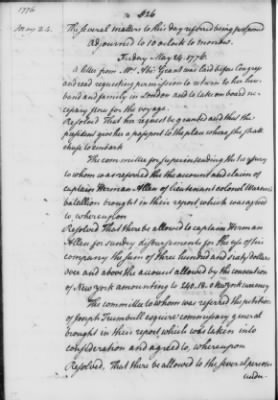 1776
326
May 24.
The several matters to this day referred being postponed
Adjourned to 10 o'clock to morrow.
Friday May 24. 1776.
A letter from Mrs. Grant was laid before Congress
and read requesting permission to return to her hus-
band and family in London and to take on board ne-
cessary stores for the voyage.
Resolved That her request be granted and that the
president give her a passport to the place where she shall
chuse to embark
The committee for superintending the treasury
to whom was referred the the account and claim of
captain Herman Allen of lieutenant colonel Warner's
batallion brought in their report which was agreed
to, whereupon
Resolved That there be allowed to captain Herman
Allen for sundry disbursements for the use of his
company the sum of three hundred and sixty dollars
over and above the account allowed by the convention
of New york amounting to 240.18. New york currency
The committee to whom was referred the petition
of Joseph Trumbull esquire commissary general
brought in their report, which was taken into
consideration and agreed to, whereupon
Resolved, That there be allowed to the several persons